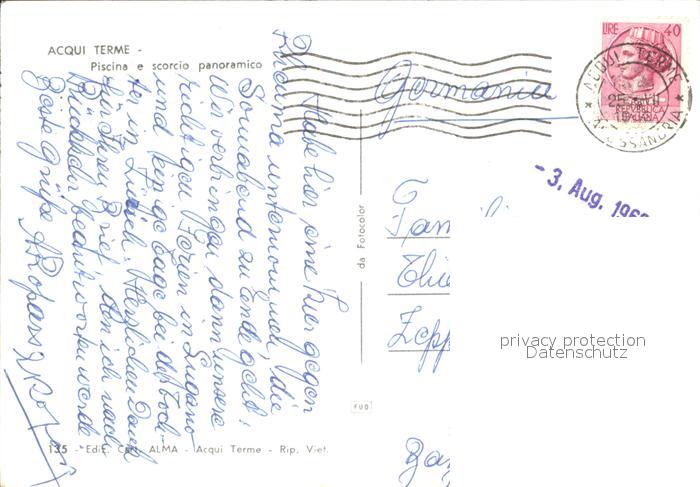 ACQUI TERME -
Piscina e scorcio panoramico
Habe hier eine Kur gegen
Rheuma unternommen, die
Sonnabend zu Ende geht.
Wir verbringen dann unsere
richtigen Ferien in Lugano
und einige Tage bei der Toch-
ter in Zürich. Herzlichen Dank
für Ihren Brief, den ich nach
Rückkehr beantworten werde.
Beste Grüße
135 - Ediz. Cart. ALMA - Acqui Terme - Rip. Viet.
da Fotocolor
FUO
Germania
LIRE 40
REPUBBLICA
ITALIANA
ACQUI TERME
* ALESSANDRIA *
- 3. Aug. 196
Fam
Thie
Zepp
privacy protection
Datenschutz